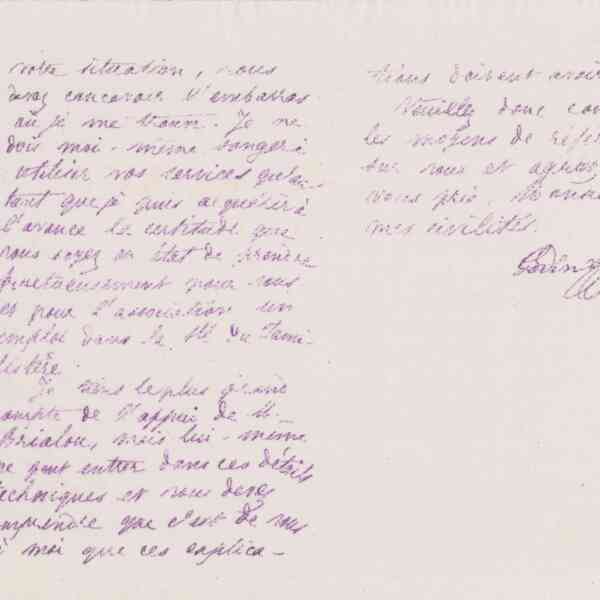 votre situation, vous
devez concevoir l'embarras
où je me trouve. Je ne
dois moi-même songer à
utiliser vos services qu'au-
tant que je puis acquérir à
l'avance la certitude que
vous soyez en état de prendre
fructueusement pour vous
et pour l'association un
emploi dans la Sté du Fami-
listère.
Je tiens le plus grand
compte de l'appui de M.
Brialou, mais lui-même
ne peut entrer dans ces détails
techniques et vous devez
comprendre que c'est de vous
à moi que ces explica-
tions doivent avoir
Veuillez donc
les moyens de
sur vous et agréez,
vous prie,
mes civilités.
Godin